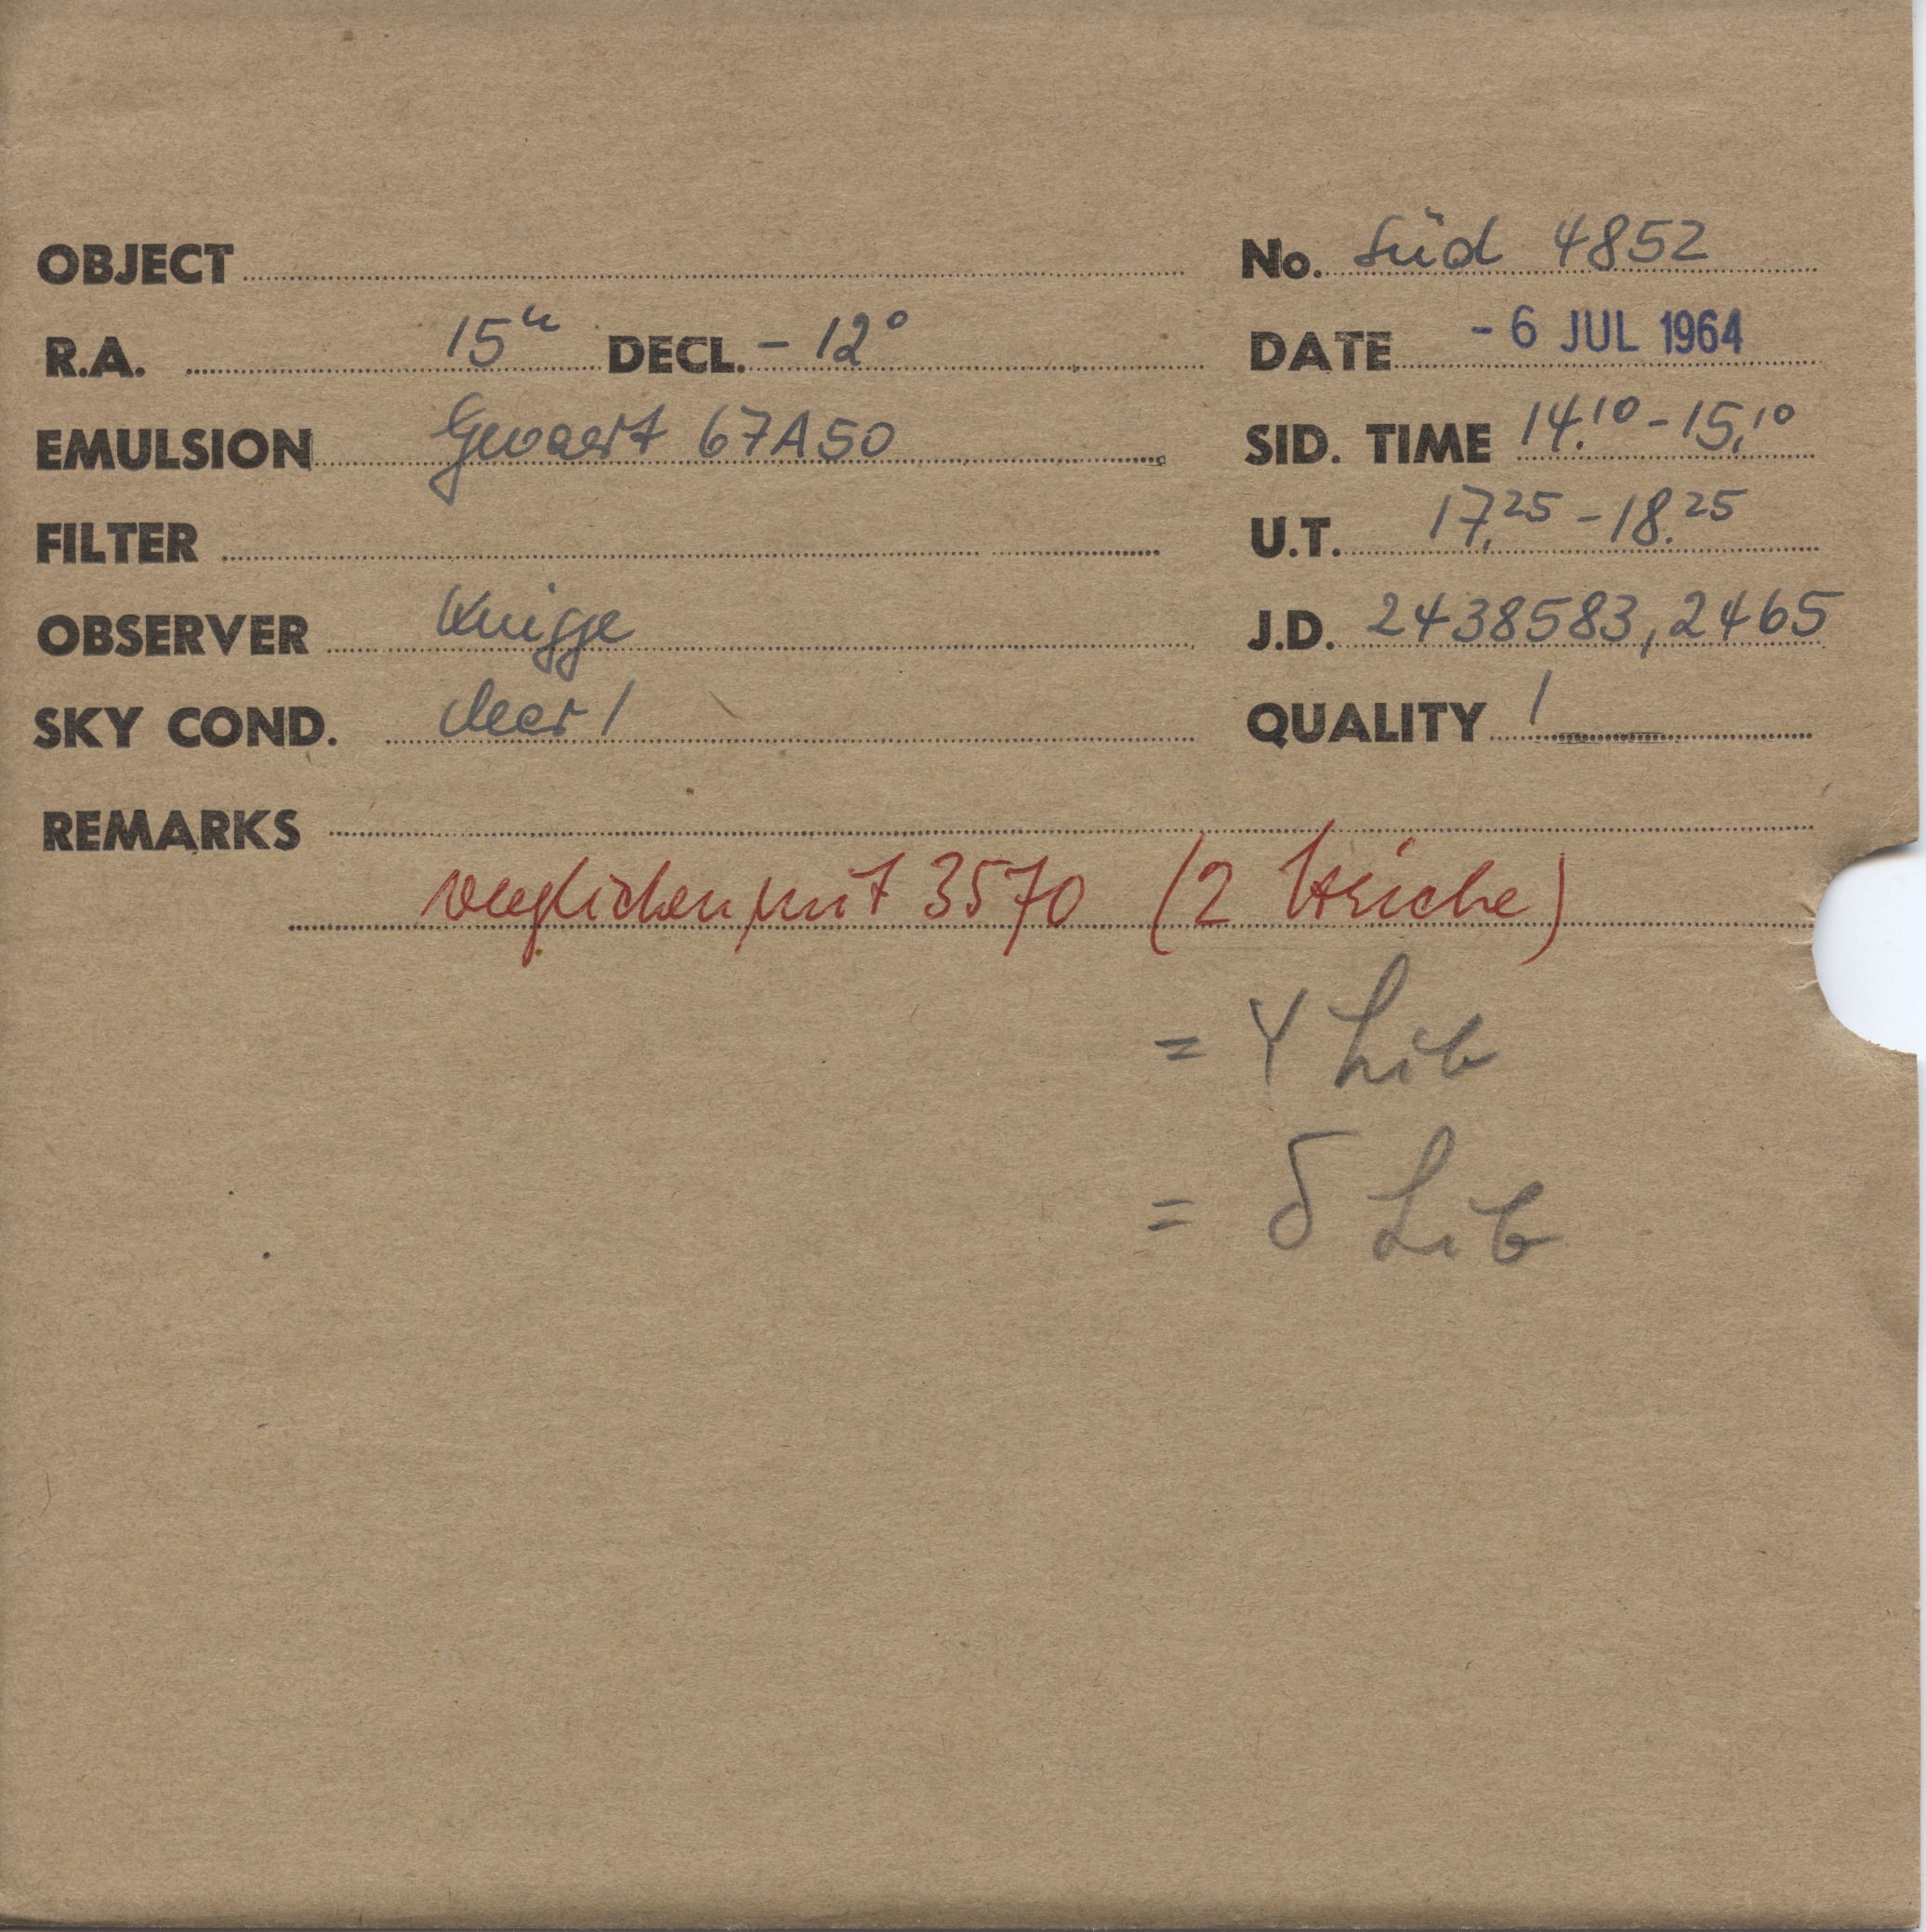 OBJECT No. Süd 4852
R.A. 15h DECL. - 12° DATE - 6 JUL 1964
EMULSION Gevaert 67A50 SID. TIME 14.10 - 15.10
FILTER U.T. 17.25 - 18.25
OBSERVER Knigge J.D. 2438583,2465
SKY COND. clear 1 QUALITY 1
REMARKS
verglichen mit 3570 (2 Striche)
= Y Lib
= δ Lib